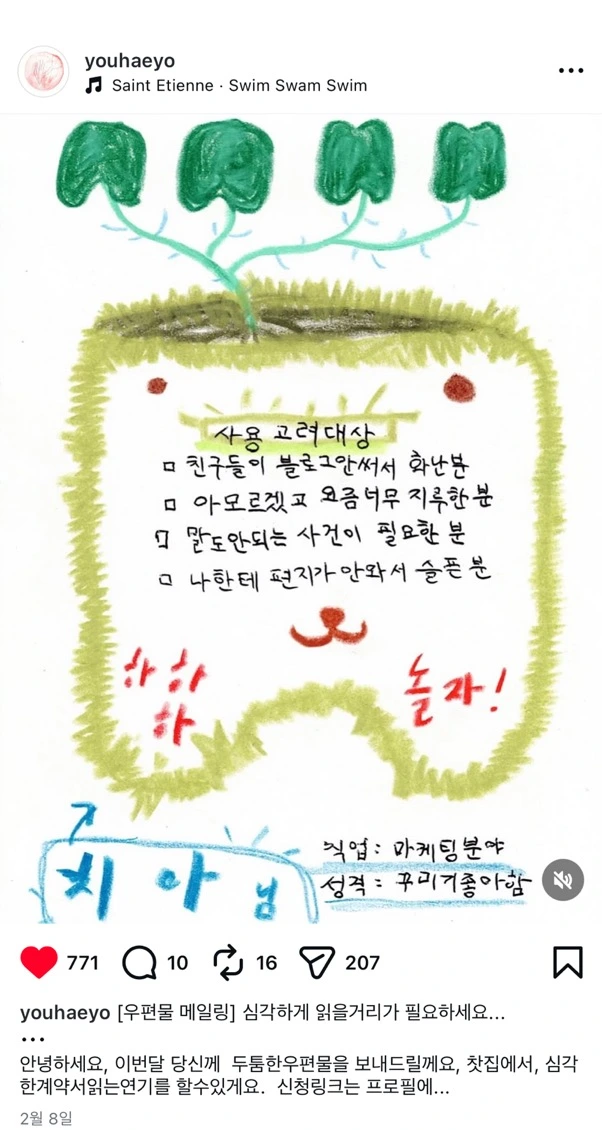 youhaeyo
Saint Etienne · Swim Swam Swim
사용 고려대상
친구들이 블로그안써서 화난분
아모르겠고 요즘너무 지루한분
말도안되는 사건이 필요한 분
나한테 편지가 안와서 슬픈 분
하 하
하
놀자!
치아님
직업 : 마케팅분야
성격 : 꾸미기좋아함
771 10 16 207
youhaeyo [우편물 메일링] 심각하게 읽을거리가 필요하세요...
...
안녕하세요, 이번달 당신께 두툼한우편물을 보내드릴께요, 찻집에서, 심각
한계약서읽는연기를 할수있게요. 신청링크는 프로필에...
2월 8일